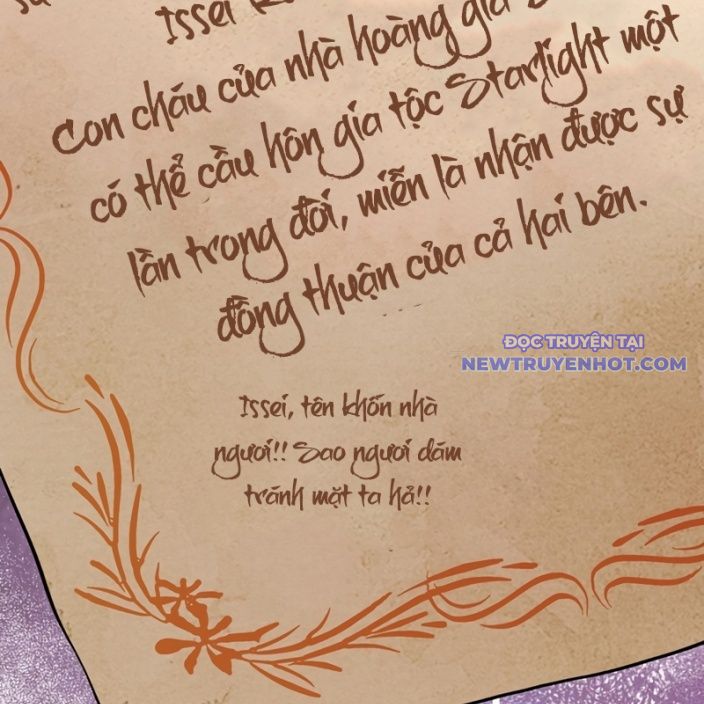 Issei
Con cháu của nhà hoàng gia
có thể cầu hôn gia tộc Starlight một
lần trong đời, miễn là nhận được sự
đồng thuận của cả hai bên.
ĐỌC TRUYỆN TẠI
NEWTRUYENHOT.COM
Issei, tên khốn nhà
ngươi!! Sao ngươi dám
tránh mặt ta hả!!